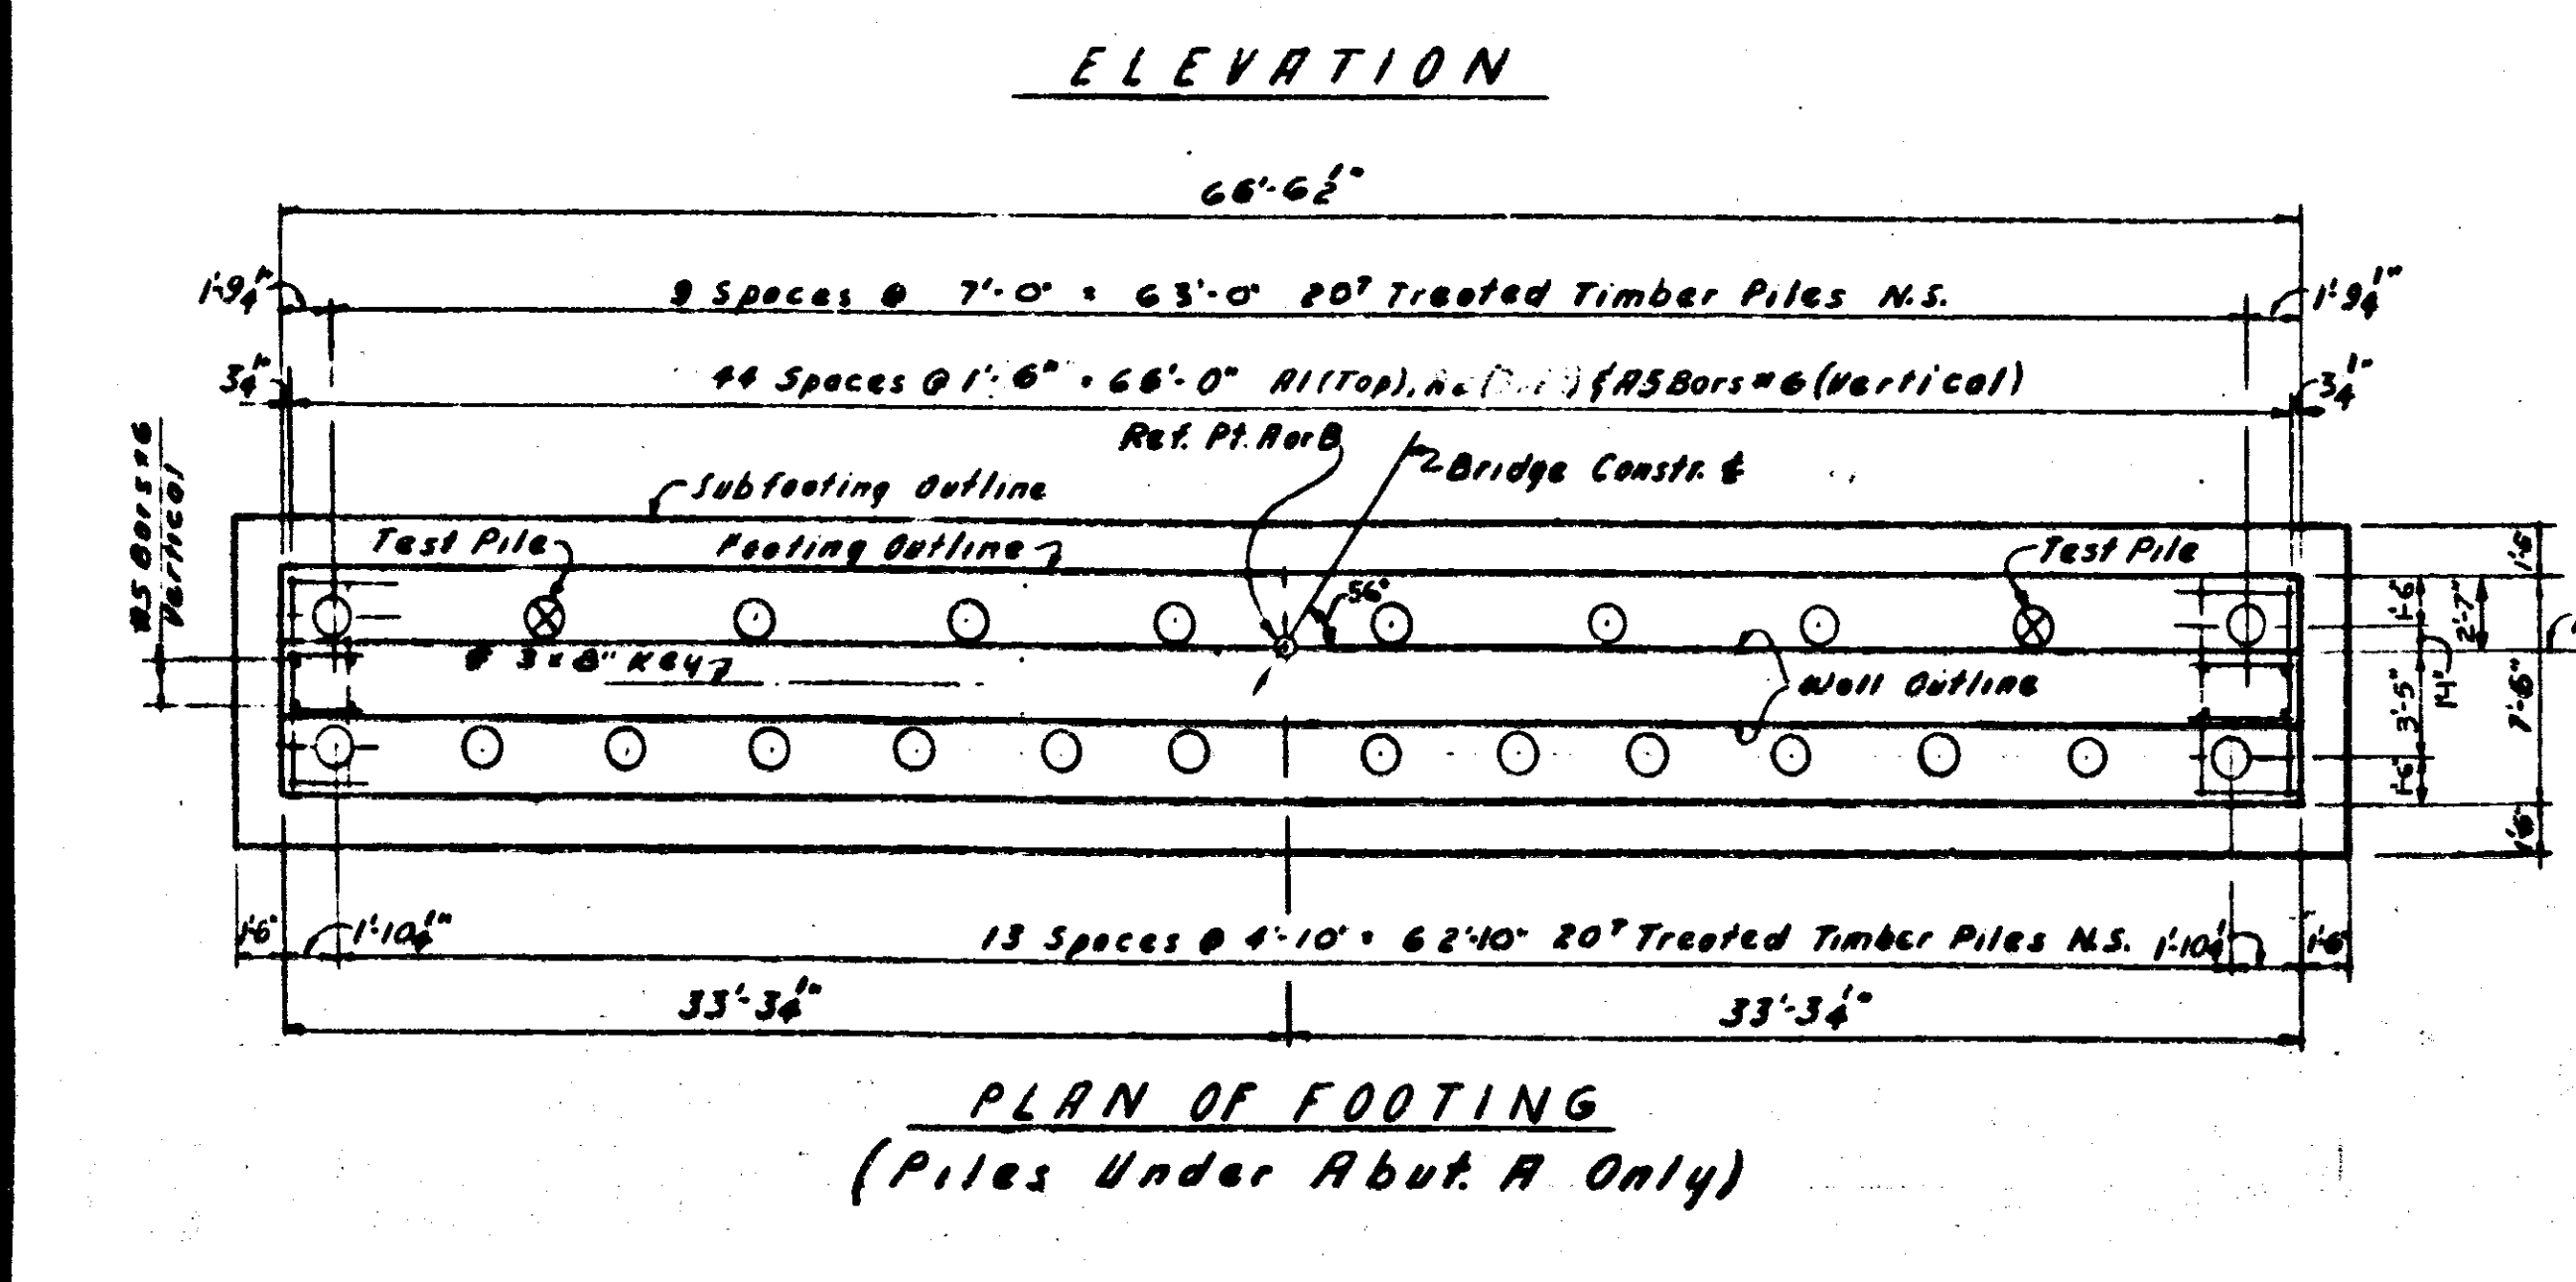 ELEVATION
66'-6½"
1'-9¼"
9 Spaces @ 7'-0" = 63'-0" 20T Treated Timber Piles N.S.
1'-9¼"
3¼"
44 Spaces @ 1'-6" = 66'-0" A1(Top), & A5 Bars #6 (Vertical)
3¼"
Ref. Pt. A or B
Bridge Constr. ℄
Subfooting Outline
A5 Bars #6
Vertical
Test Pile
Footing Outline
Test Pile
56°
3 x 8" Key
Wall Outline
1'-6"
1'-6"
2'-7"
3'-5"
7'-6"
1'-6"
1'-6"
1'-6"
1'-10¼"
13 Spaces @ 4'-10" = 62'-10" 20T Treated Timber Piles N.S.
1'-10¼"
1'-6"
33'-3¼"
33'-3¼"
PLAN OF FOOTING
(Piles Under Abut. A Only)